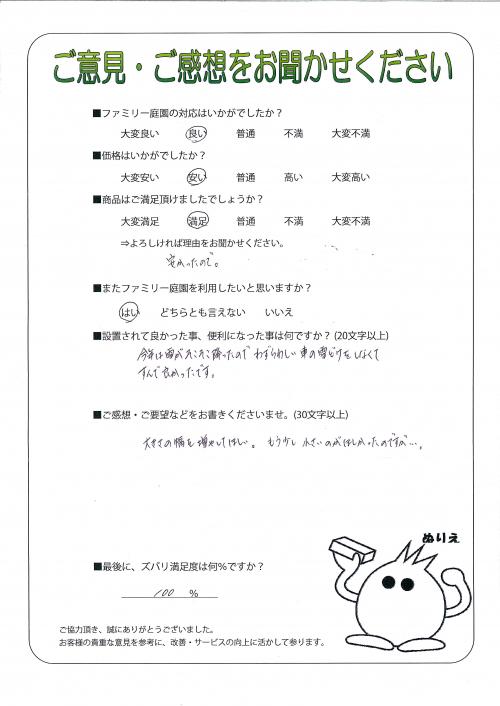 ご意見・ご感想をお聞かせください
■ファミリー庭園の対応はいかがでしたか？
大変良い 良い 普通 不満 大変不満
■価格はいかがでしたか？
大変安い 安い 普通 高い 大変高い
■商品はご満足頂けましたでしょうか？
大変満足 満足 普通 不満 大変不満
⇒よろしければ理由をお聞かせください。
安かったので。
■またファミリー庭園を利用したいと思いますか？
はい どちらとも言えない いいえ
■設置されて良かった事、便利になった事は何ですか？(20文字以上)
今年は雪がそこそこ降ったので わずらわしい 車の雪どけをしなくて
すんで良かったです。
■ご感想・ご要望などをお書きくださいませ。(30文字以上)
大きさの幅を増やしてほしい。 もう少し 小さいのがほしかったのですが…。
ぬりえ
■最後に、ズバリ満足度は何%ですか？
100 %
ご協力頂き、誠にありがとうございました。
お客様の貴重な意見を参考に、改善・サービスの向上に活かして参ります。